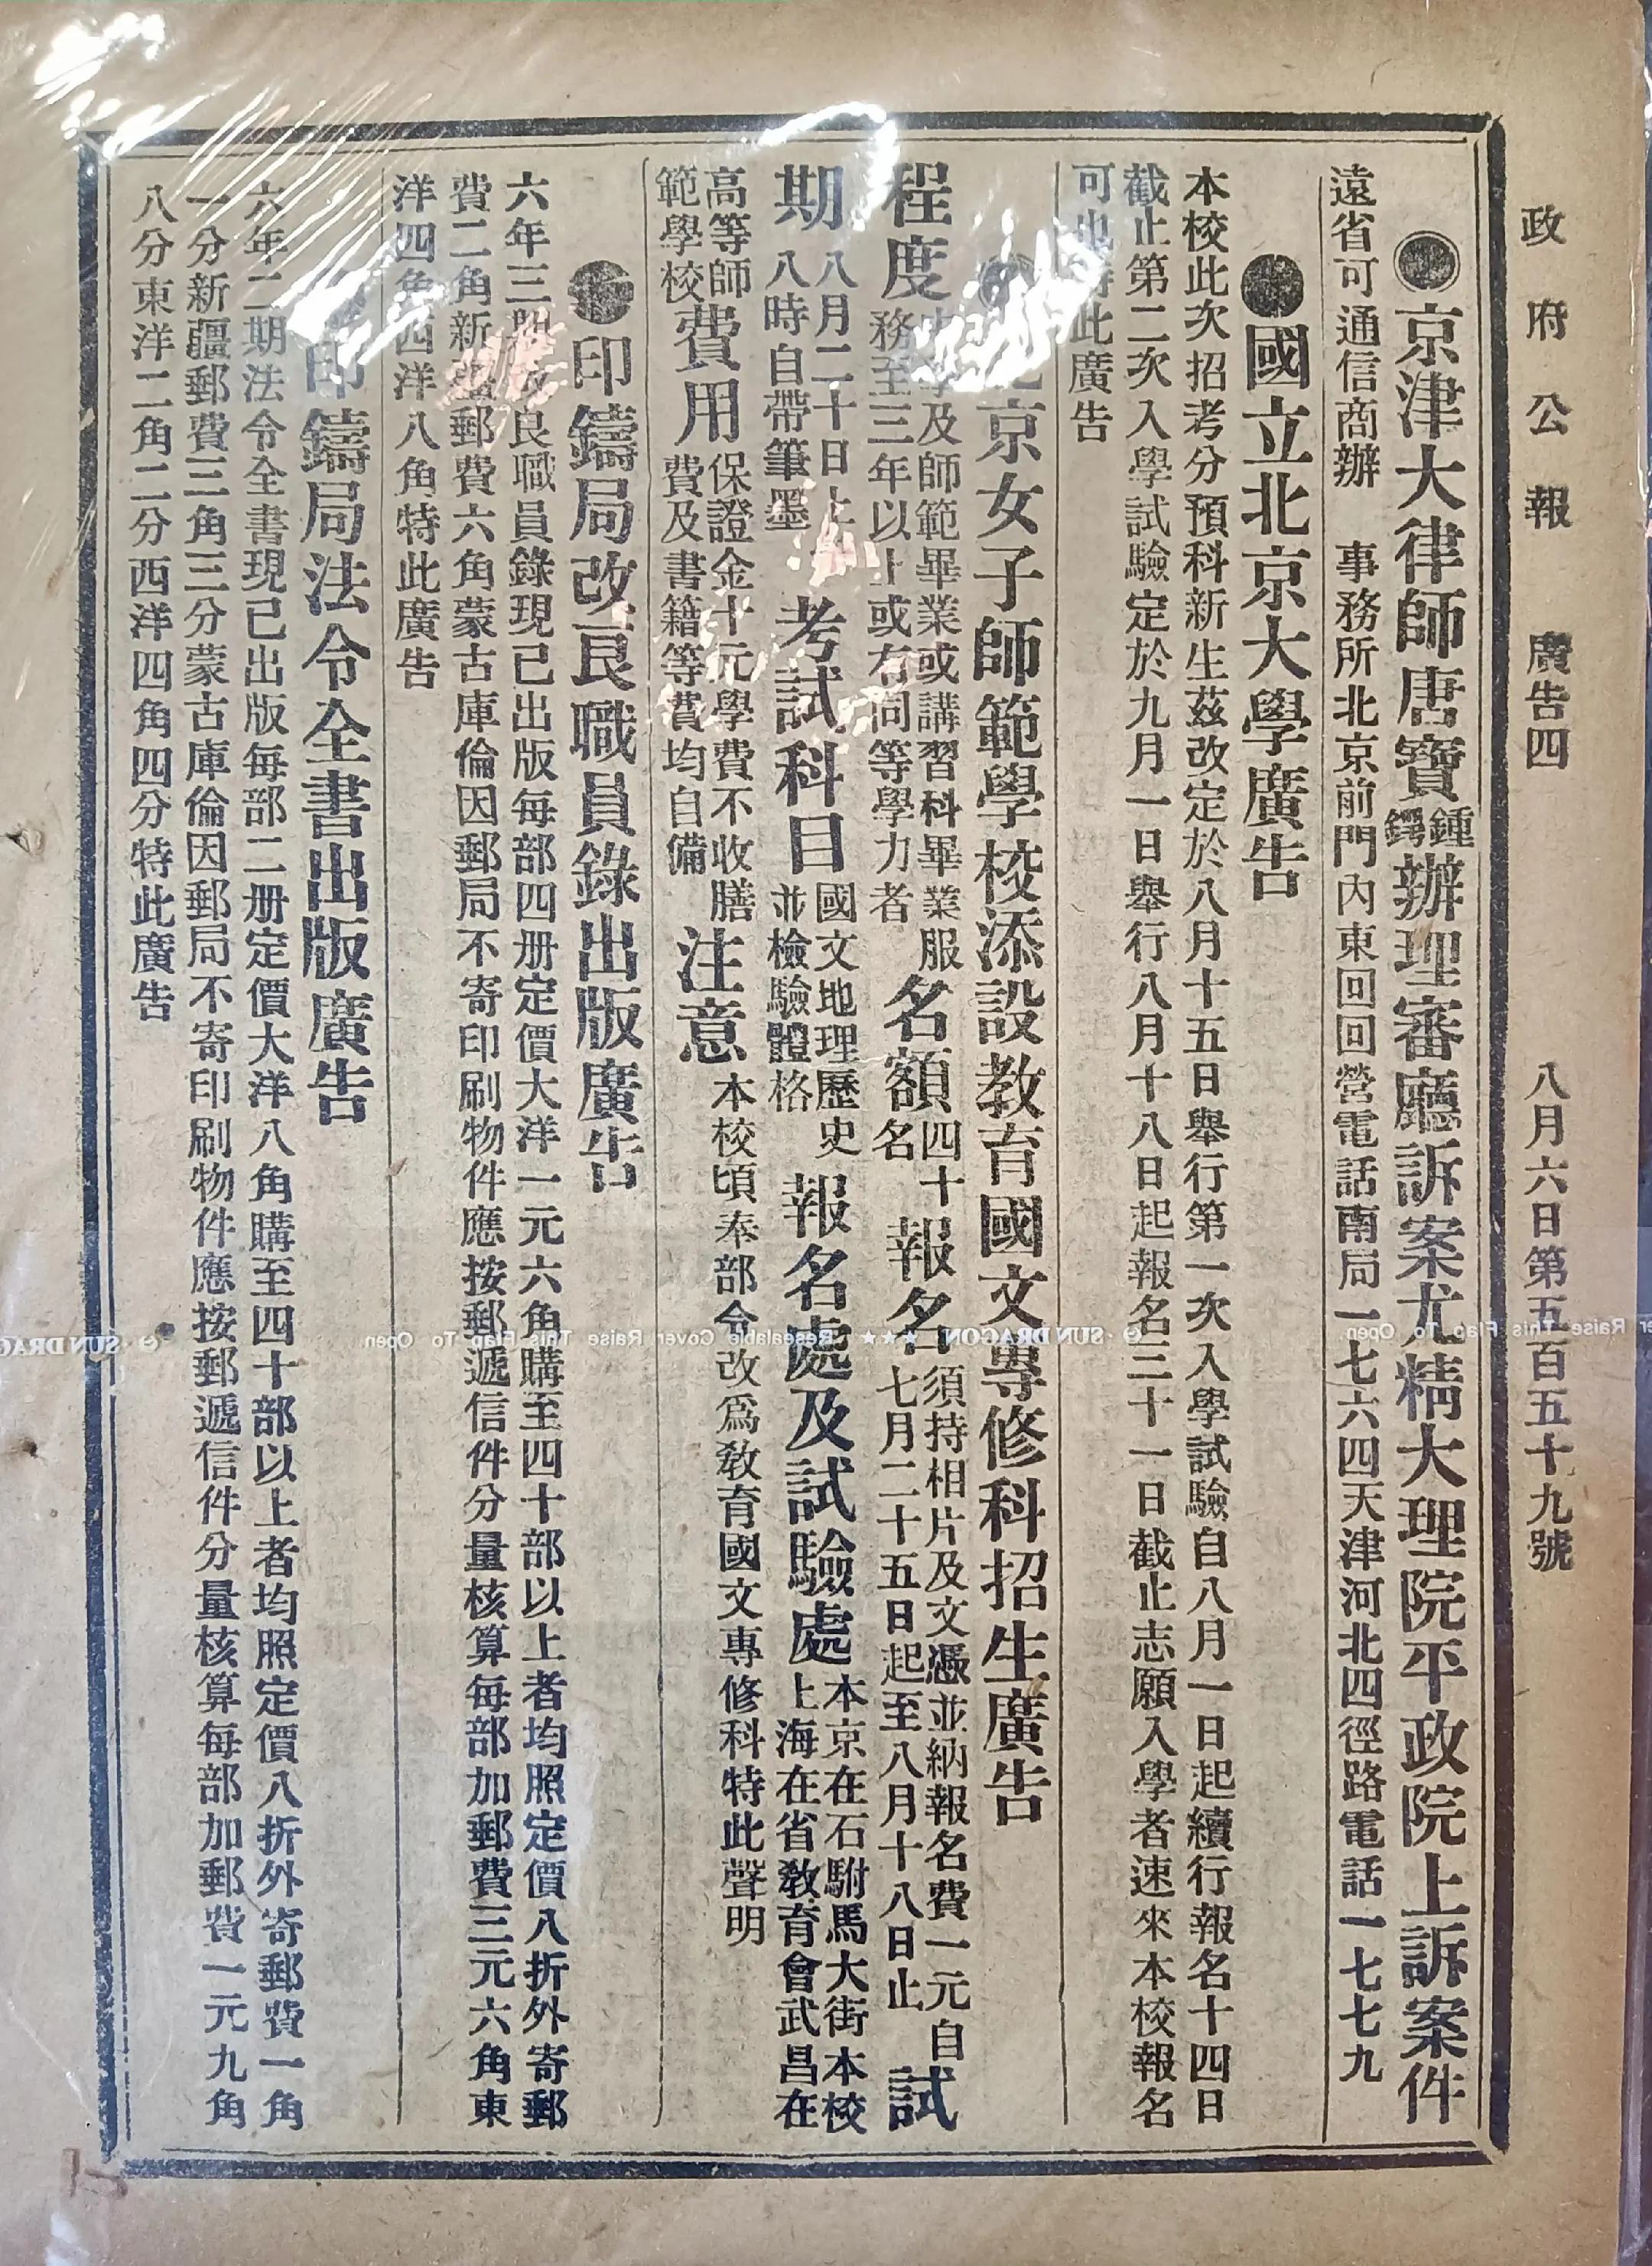 政府公報 廣告四 八月六日第五百五十九號
●京津大律師唐寶鍾鍔辦理審廳訴案尤精大理院平政院上訴案件
遠省可通信商辦 事務所北京前門內東回回營電話南局一七六四天津河北四徑路電話一七七九
●國立北京大學廣告
本校此次招考分預科新生茲改定於八月十五日舉行第一次入學試驗自八月一日起續行報名十四日
截止第二次入學試驗定於九月一日舉行八月十八日起報名三十一日截止志願入學者速來本校報名
可也 此廣告
京女子師範學校添設教育國文專修科招生廣告
程度
學及師範畢業或講習科畢業服
務至三年以上或有同等學力者
名額
四十
名
報名
須持相片及文憑並納報名費一元自
七月二十五日起至八月十八日止
試
期
八月二十日上
八時自帶筆墨
考試科目
國文地理歷史
並檢驗體格
報名處及試驗處
本京在石駙馬大街本校
上海在省教育會武昌在
高等師
範學校
費用
保證金十元學費不收膳
費及書籍等費均自備
注意
本校頃奉部令改爲教育國文專修科特此聲明
●印鑄局改良職員錄出版廣告
六年三期改良職員錄現已出版每部四册定價大洋一元六角購至四十部以上者均照定價八折外寄郵
費二角新疆郵費六角蒙古庫倫因郵局不寄印刷物件應按郵遞信件分量核算每部加郵費三元六角東
洋四角西洋八角特此廣告
印鑄局法令全書出版廣告
六年二期法令全書現已出版每部二册定價大洋八角購至四十部以上者均照定價八折外寄郵費一角
一分新疆郵費三角三分蒙古庫倫因郵局不寄印刷物件應按郵遞信件分量核算每部加郵費一元九角
八分東洋二角二分西洋四角四分特此廣告
SUN DRAGON ★★★ Resealable Cover Raise This Flap To Open